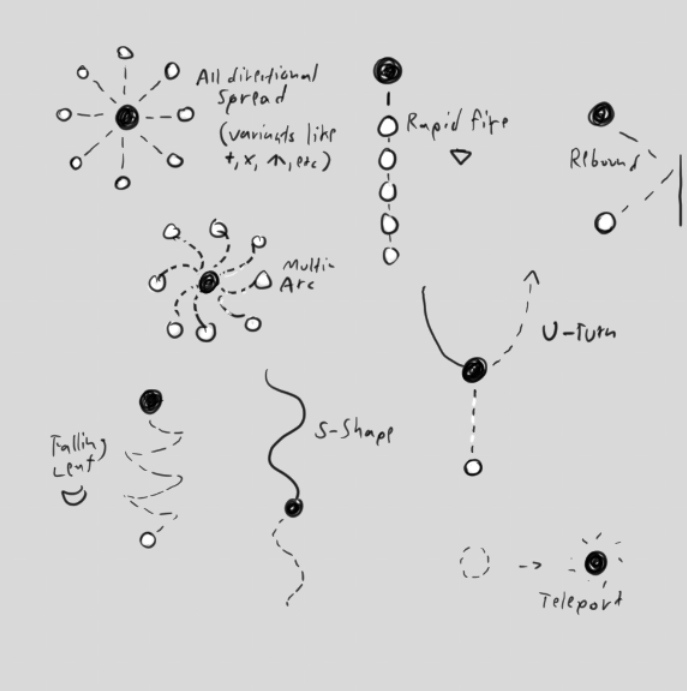 All directional
Spread
(variants like
+, x, ^, etc)
Rapid fire
Rebound
Multi-
Arc
U-Turn
Falling
Leaf
S-Shape
Teleport